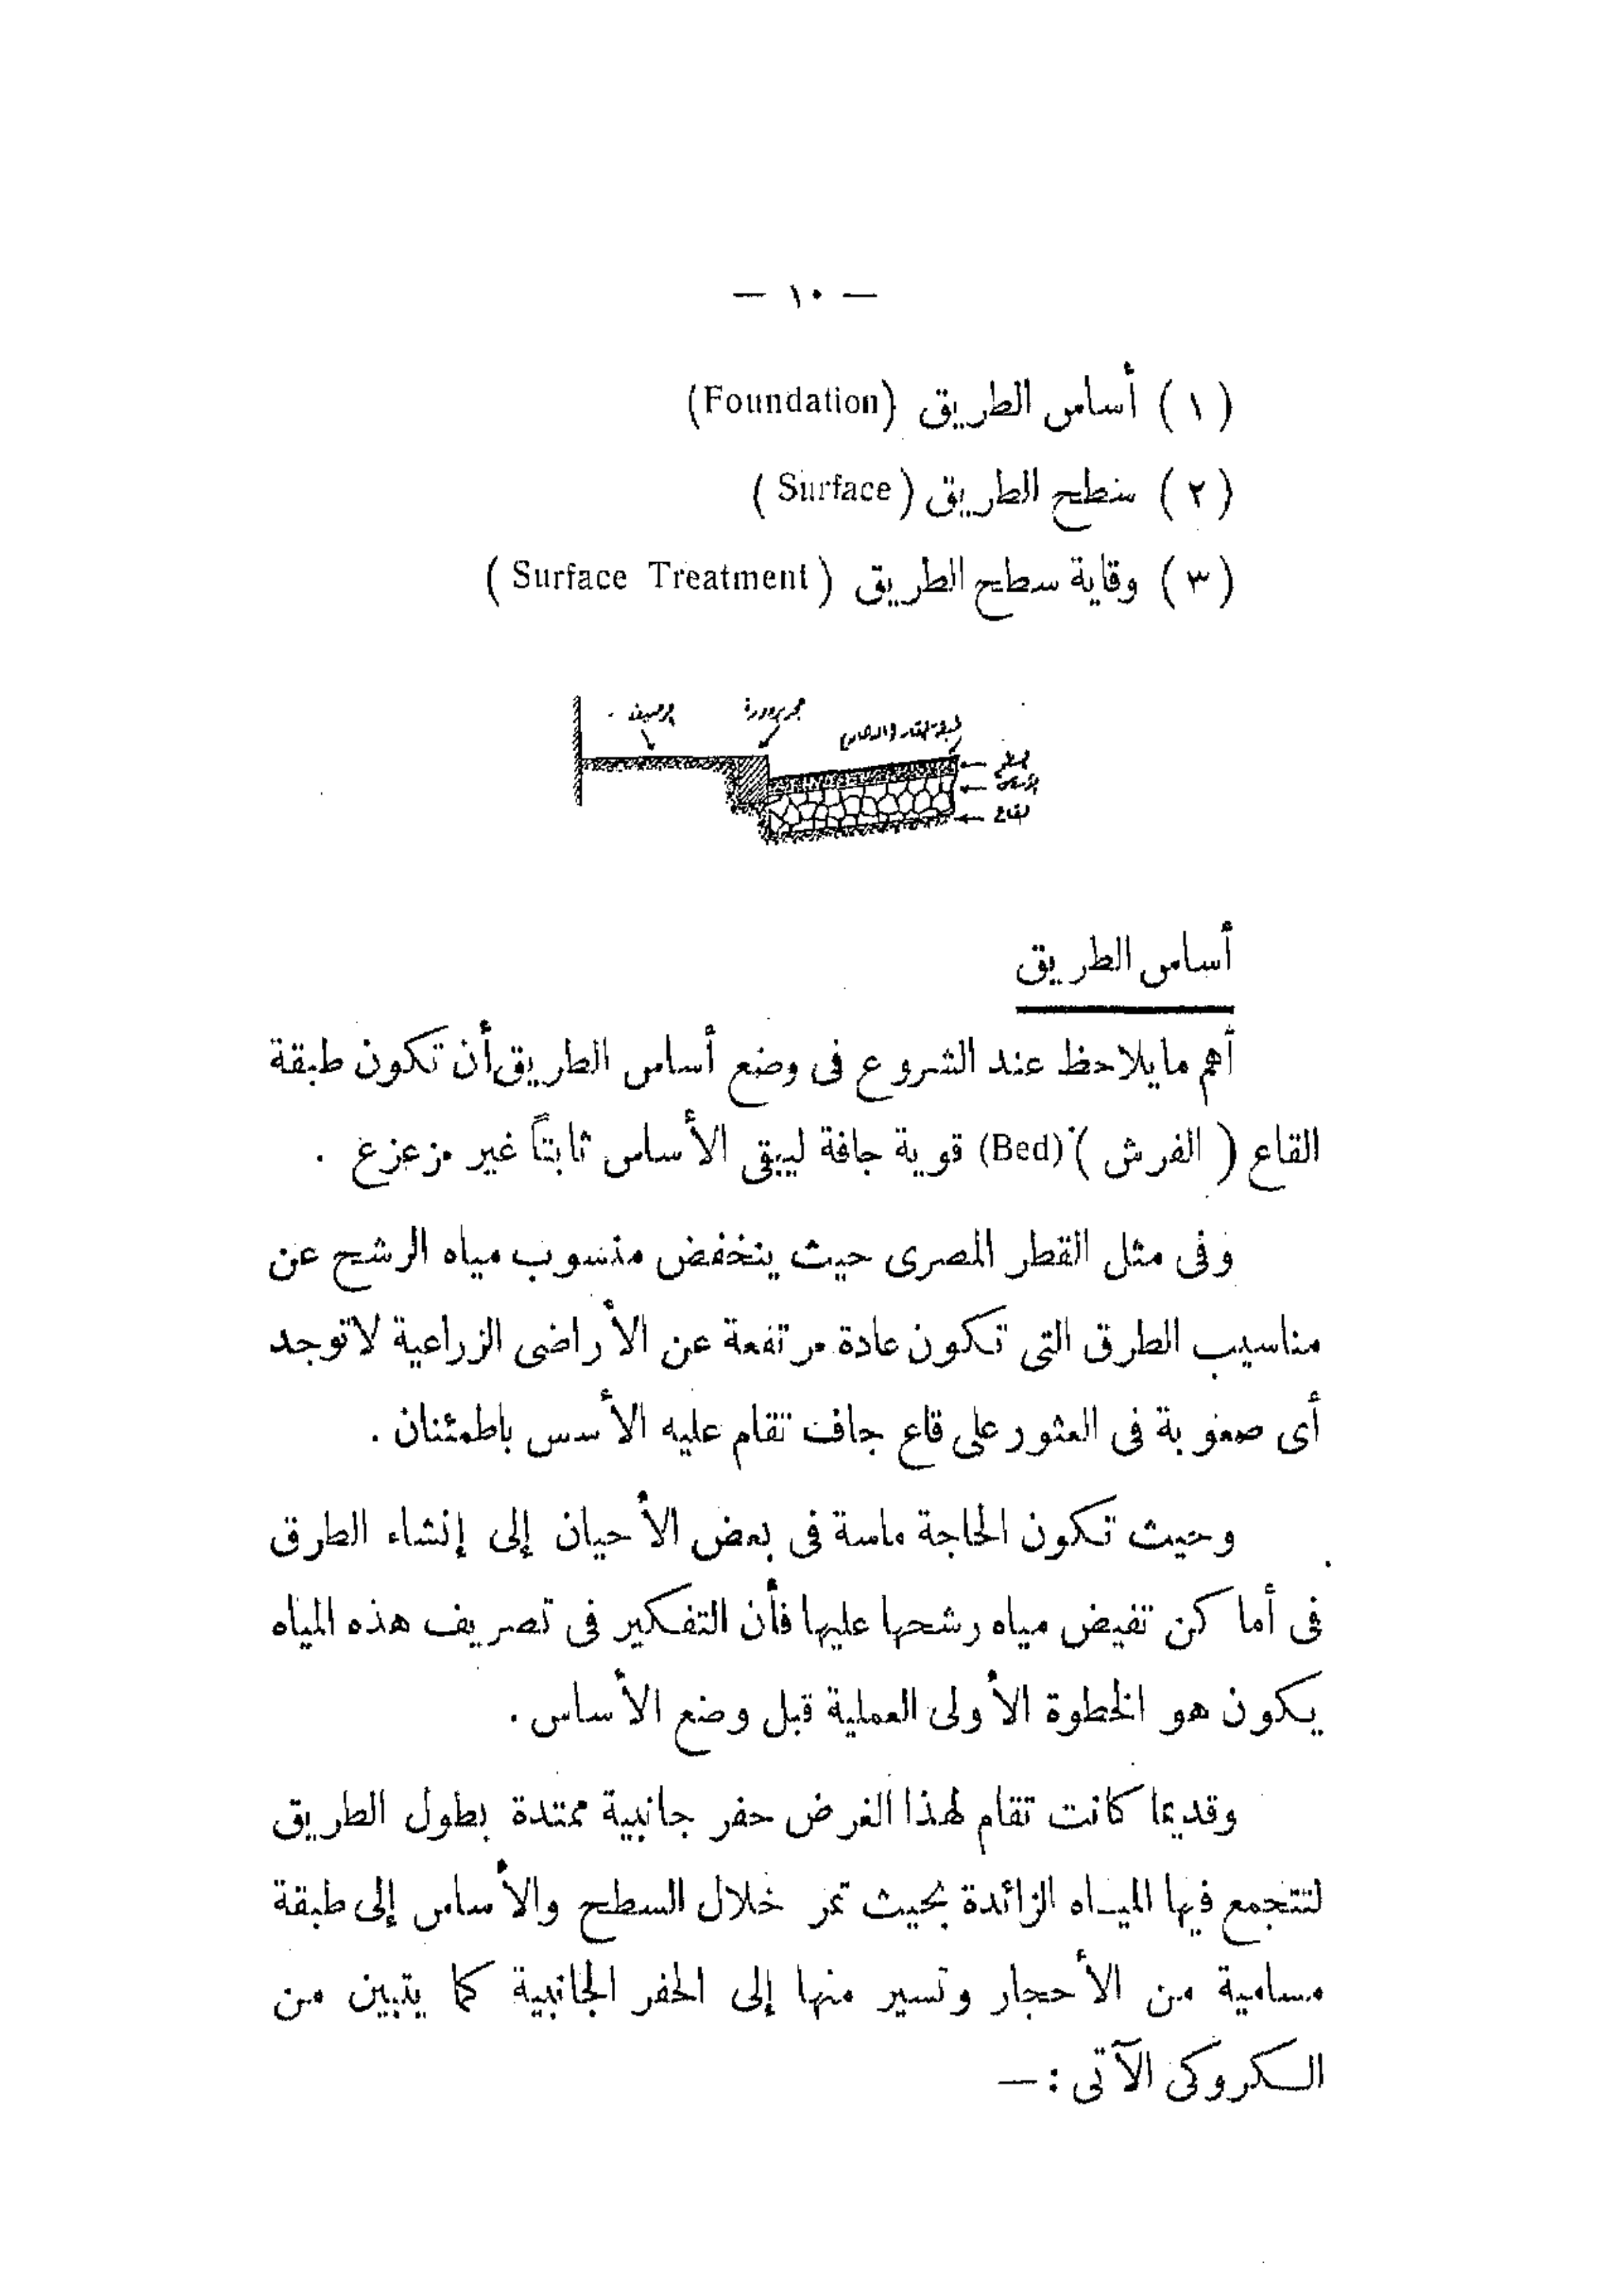 — ١٠ —
( ١ ) أساس الطريق (Foundation)
( ٢ ) سطح الطريق ( Surface )
( ٣ ) وقاية سطح الطريق ( Surface Treatment )
الرصيف
السطح
الأساس
القاع
أساس الطريق
أهم مايلاحظ عند الشروع فى وضع أساس الطريق أن تكون طبقة
القاع ( الفرش ) (Bed) قوية جافة ليبقى الأساس ثابتاً غير مزعزع .
وفى مثل القطر المصرى حيث ينخفض منسوب مياه الرشح عن
مناسيب الطرق التى تكون عادة مرتفعة عن الأراضى الزراعية لاتوجد
أى صعوبة فى العثور على قاع جاف تقام عليه الأسس باطمئنان .
وحيث تكون الحاجة ماسة فى بعض الأحيان إلى إنشاء الطرق
فى أماكن تفيض مياه رشحها عليها فأن التفكير فى تصريف هذه المياه
يكون هو الخطوة الأولى العملية قبل وضع الأساس .
وقديما كانت تقام لهذا الغرض حفر جانبية ممتدة بطول الطريق
لتتجمع فيها الميـاه الزائدة بحيث تمر خلال السطح والأساس إلى طبقة
مسامية من الأحجار وتسير منها إلى الحفر الجانبية كما يتبين من
الـكروكى الآتى : —